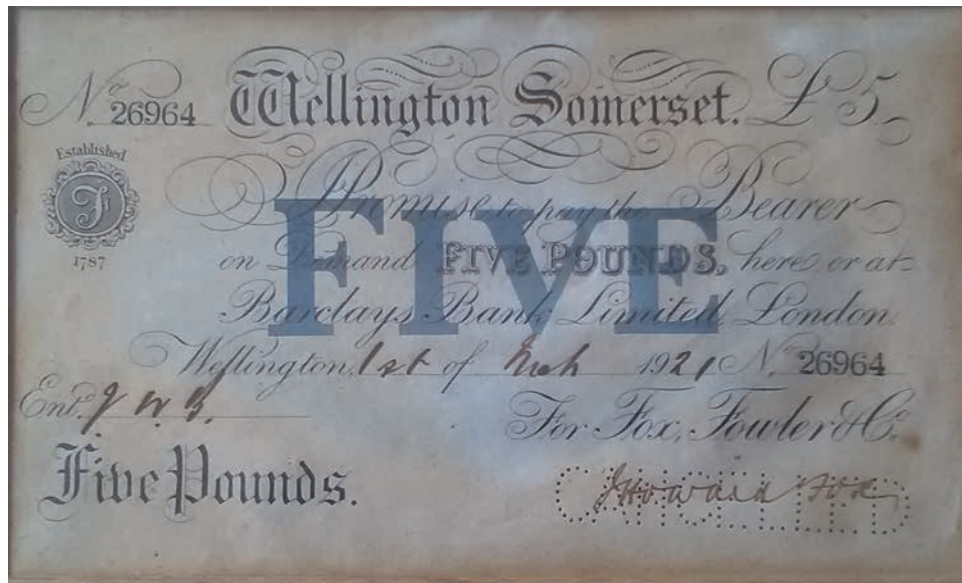 No 26964 Wellington Somerset. £5
Established
F
1787
I Promise to pay the Bearer
on Demand FIVE POUNDS, here or at
FIVE
Barclays Bank Limited, London.
Wellington, 1st of Mch 1921 No. 26964
Entd J W B.
For Fox, Fowler & Co.
Five Pounds.
J Howard Fox
CANCELLED